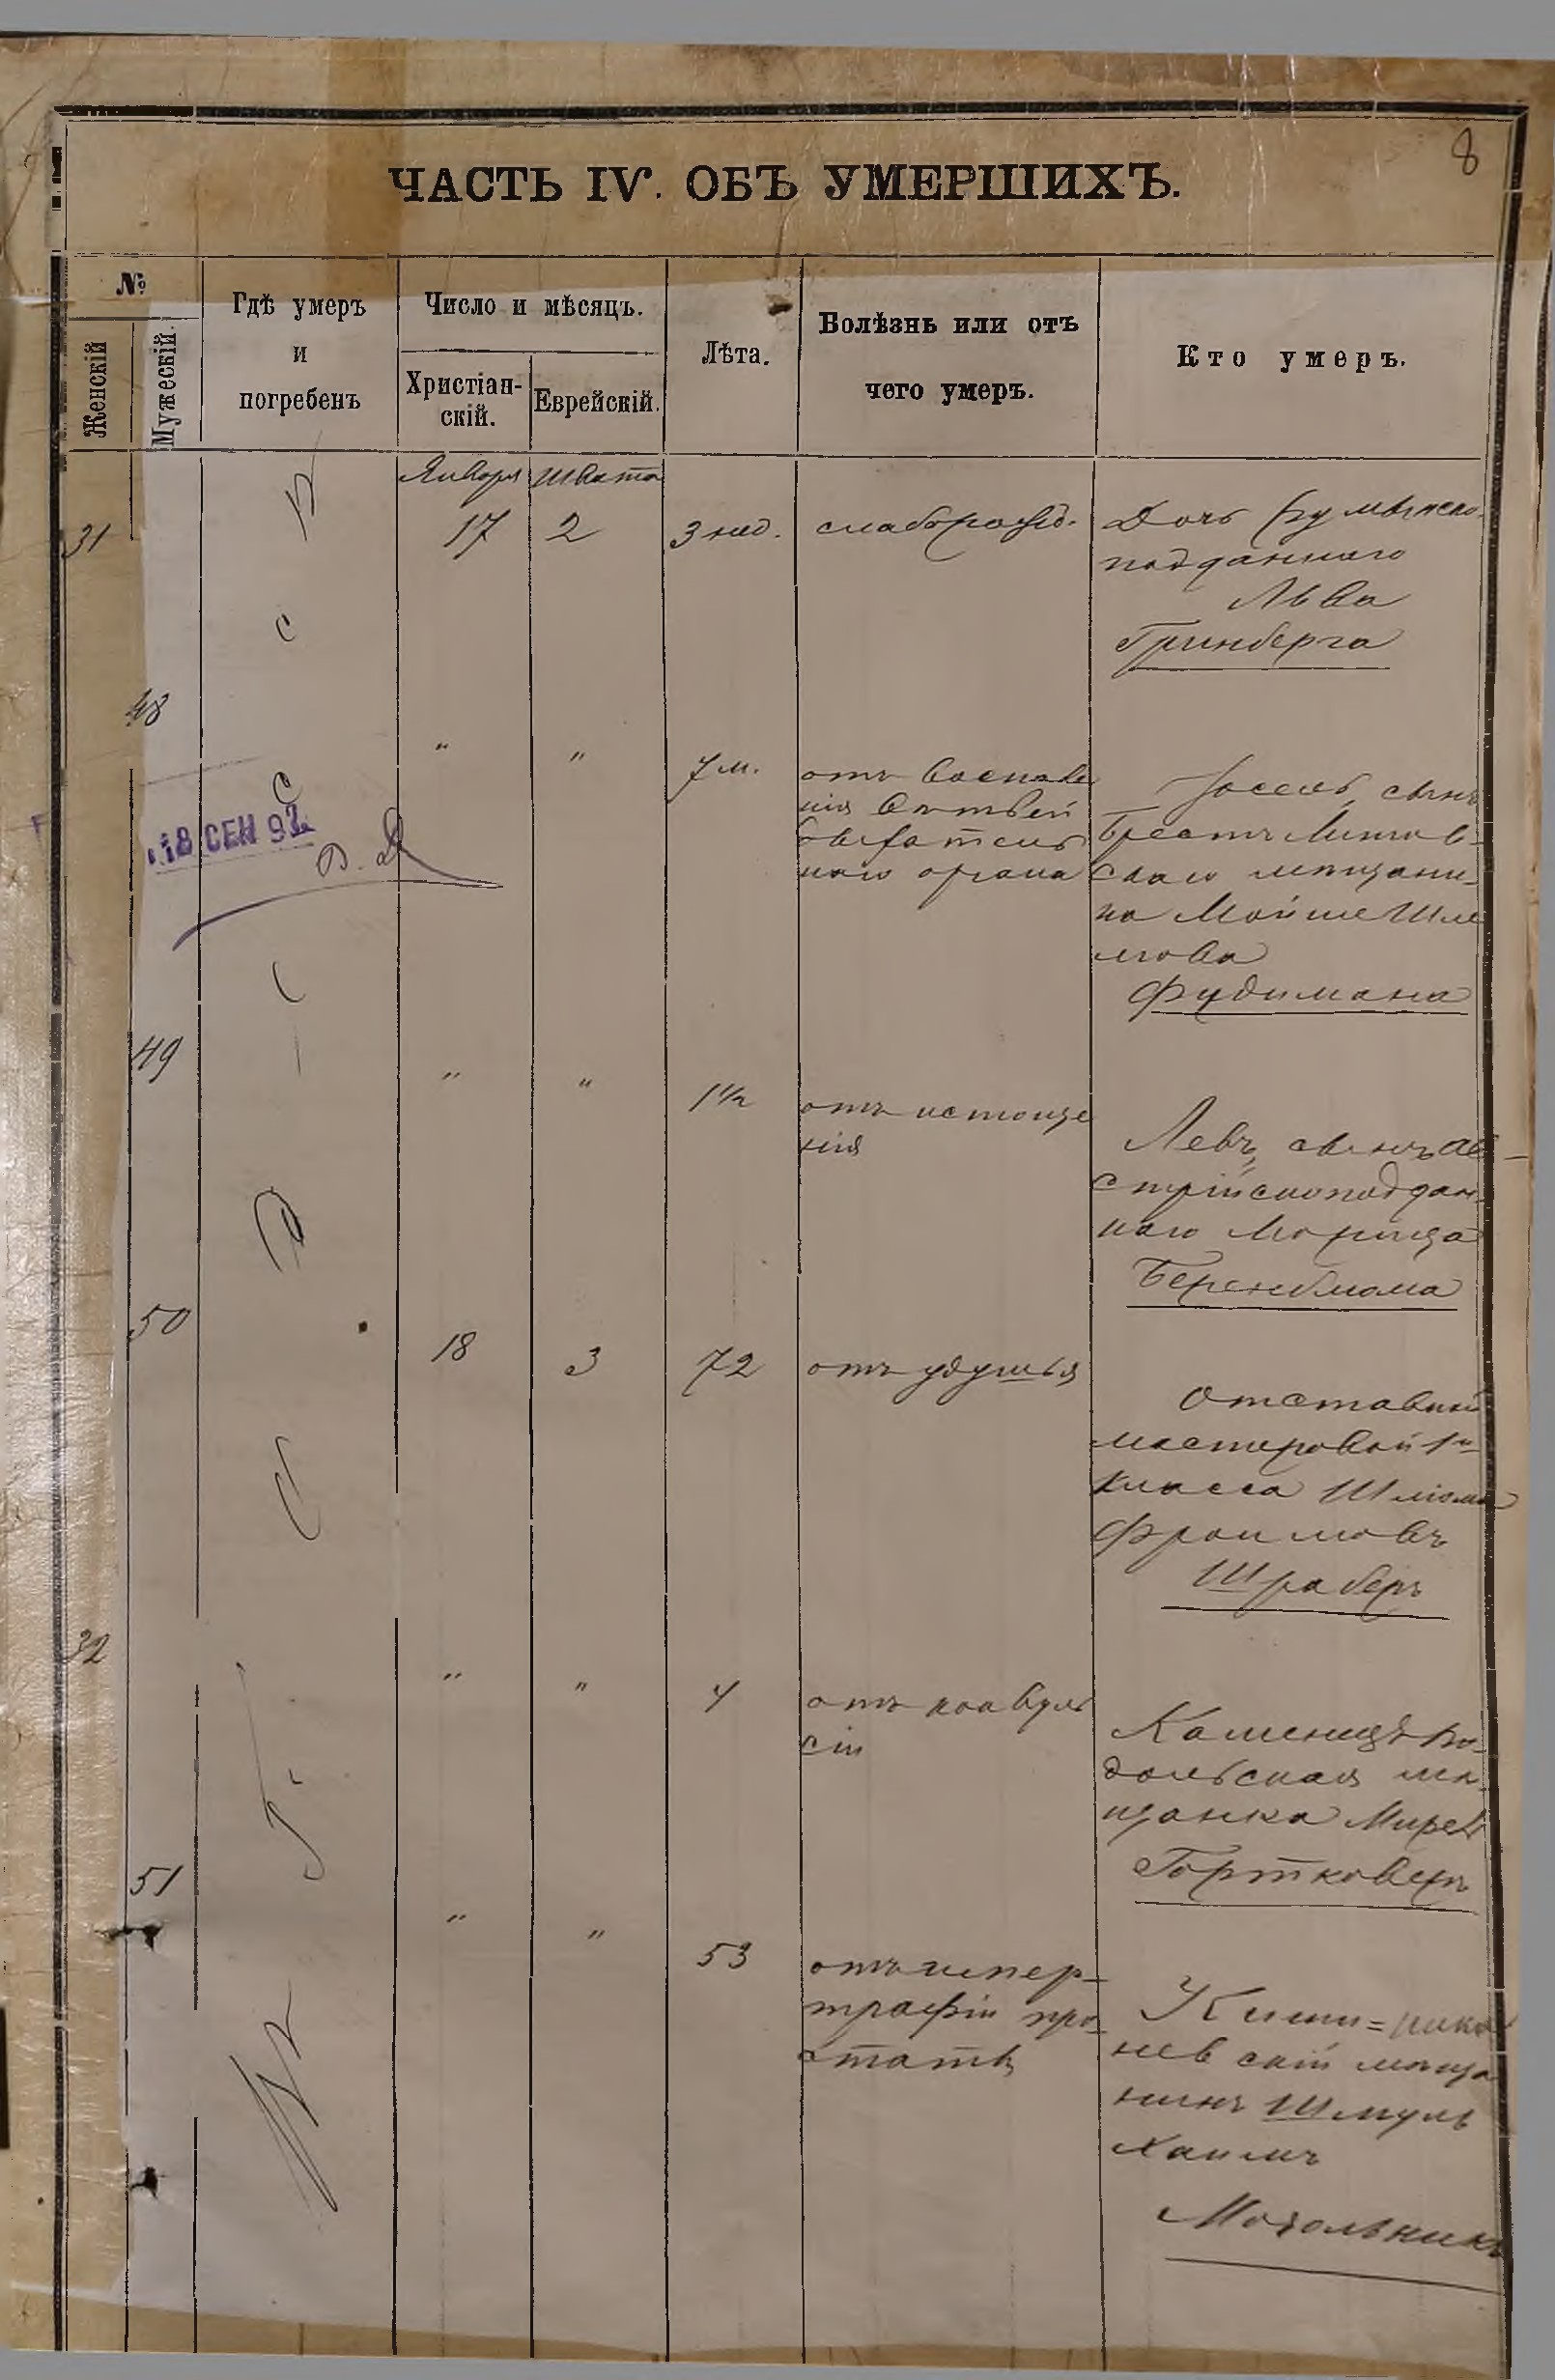 8
ЧАСТЬ IV. ОБЪ УМЕРШИХЪ.
№
Женскій
Мужескій.
Гдѣ умеръ
и
погребенъ
Число и мѣсяцъ.
Христіан-
скій.
Еврейскій.
Лѣта.
Болѣзнь или отъ
чего умеръ.
Кто умеръ.
Января Швата
31
17
2
3 нед.
слаборожд.
Дочь румынско-
подданнаго
Льва
Гринберга
48
"
"
7 м.
отъ воспале
нія вѣтвей
дыхатель
наго органа
Іосель, сынъ
Брестъ Литов-
скаго мѣщани-
на Мойше Шле
мова
Фудимана
18 СЕН 92
49
"
"
1 1/2
отъ истоще
нія
Левъ, сынъ ав-
стрійскоподдан-
наго Морица
Беренблюма
50
18
3
72
отъ удушья
Отставный
мастеровой 1й
класса Шліома
Фроимовъ
Шраберъ
32
"
"
4
отъ конвуль
сіи
Каменецъ по-
дольская мѣ-
щанка
Гортковеръ
51
"
"
53
отъ гипер-
трафіи про-
статы
Киши=
невскій мѣща
нинъ Шмуль
Хаимъ
Могольникъ